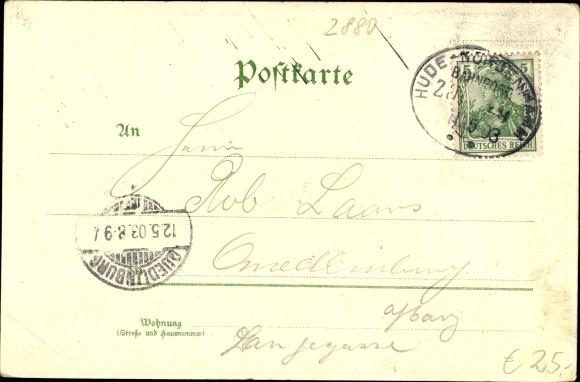 2880
Postkarte
HUDE-NORDENHAMM
BAHNPOST
5 5
DEUTSCHES REICH
An
Herrn
Rob Laars
12.5.03.8-9V
QUEDLINBURG
Quedlinburg
a/Harz
Wohnung
(Straße und Hausnummer)
Langegasse
€ 25,-